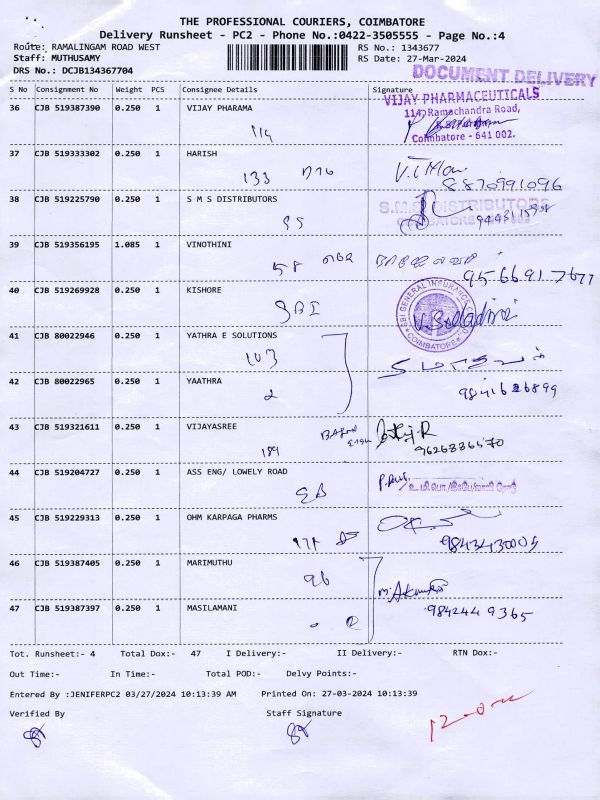 THE PROFESSIONAL COURIERS, COIMBATORE
Delivery Runsheet - PC2 - Phone No.:0422-3505555 - Page No.:4
Route: RAMALINGAM ROAD WEST
RS No.: 1343677
Staff: MUTHUSAMY
RS Date: 27-Mar-2024
DRS No.: DCJB134367704
DOCUMENT DELIVERY
S No Consignment No Weight PCS Consignee Details Signature
36 CJB 519387390 0.250 1 VIJAY PHARAMA
VIJAY PHARMACEUTICALS
114, Ramachandra Road,
Coimbatore - 641 002.
114
37 CJB 519333302 0.250 1 HARISH
133
8870991096
38 CJB 519225790 0.250 1 S M S DISTRIBUTORS
S.M.S DISTRIBUTORS
39 CJB 519356195 1.085 1 VINOTHINI
58
40 CJB 519269928 0.250 1 KISHORE
SBI
SBI GENERAL INSURANCE
COIMBATORE
41 CJB 80022946 0.250 1 YATHRA E SOLUTIONS
103
42 CJB 80022965 0.250 1 YAATHRA
2
43 CJB 519321611 0.250 1 VIJAYASREE
189
9626886570
44 CJB 519204727 0.250 1 ASS ENG/ LOWELY ROAD
EB
45 CJB 519229313 0.250 1 OHM KARPAGA PHARMS
46 CJB 519387405 0.250 1 MARIMUTHU
96
47 CJB 519387397 0.250 1 MASILAMANI
9842449365
Tot. Runsheet:- 4 Total Dox:- 47 I Delivery:- II Delivery:- RTN Dox:-
Out Time:- In Time:- Total POD:- Delvy Points:-
Entered By :JENIFERPC2 03/27/2024 10:13:39 AM Printed On: 27-03-2024 10:13:39
Verified By Staff Signature